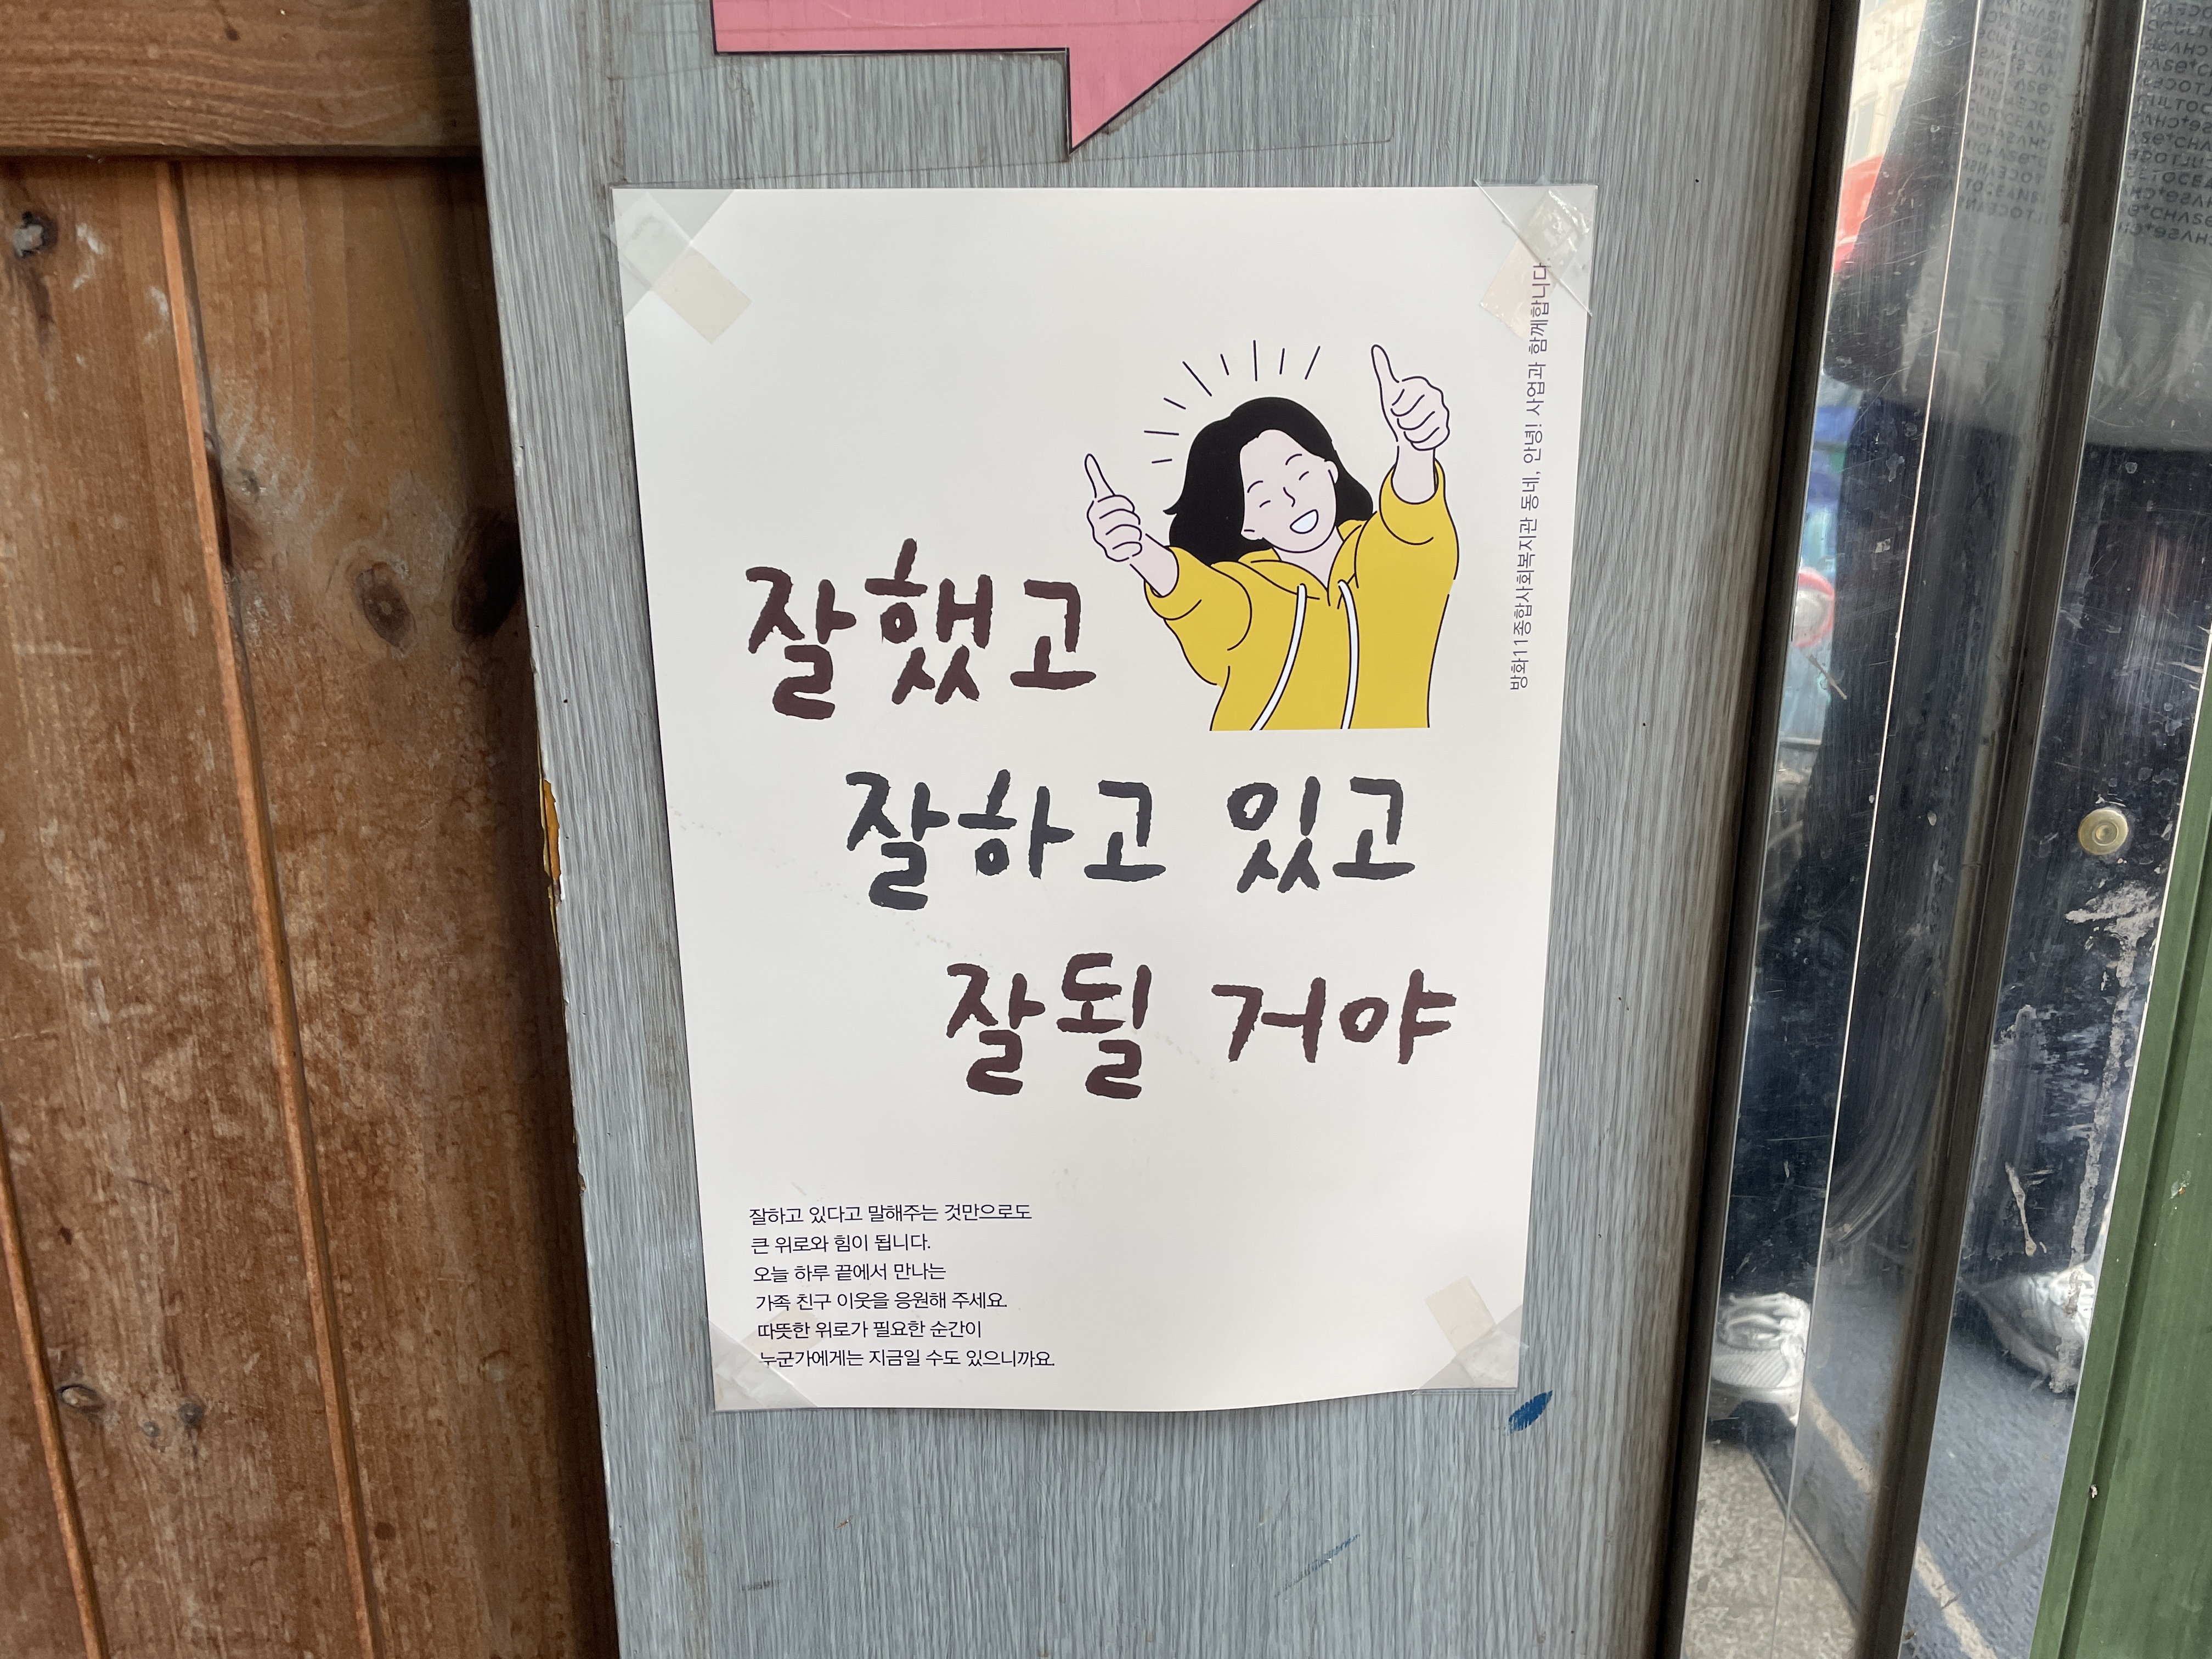 방화11종합사회복지관 동네, 안녕! 사업과 함께합니다.
잘했고
잘하고 있고
잘될 거야
잘하고 있다고 말해주는 것만으로도
큰 위로와 힘이 됩니다.
오늘 하루 끝에서 만나는
가족 친구 이웃을 응원해 주세요.
따뜻한 위로가 필요한 순간이
누군가에게는 지금일 수도 있으니까요.